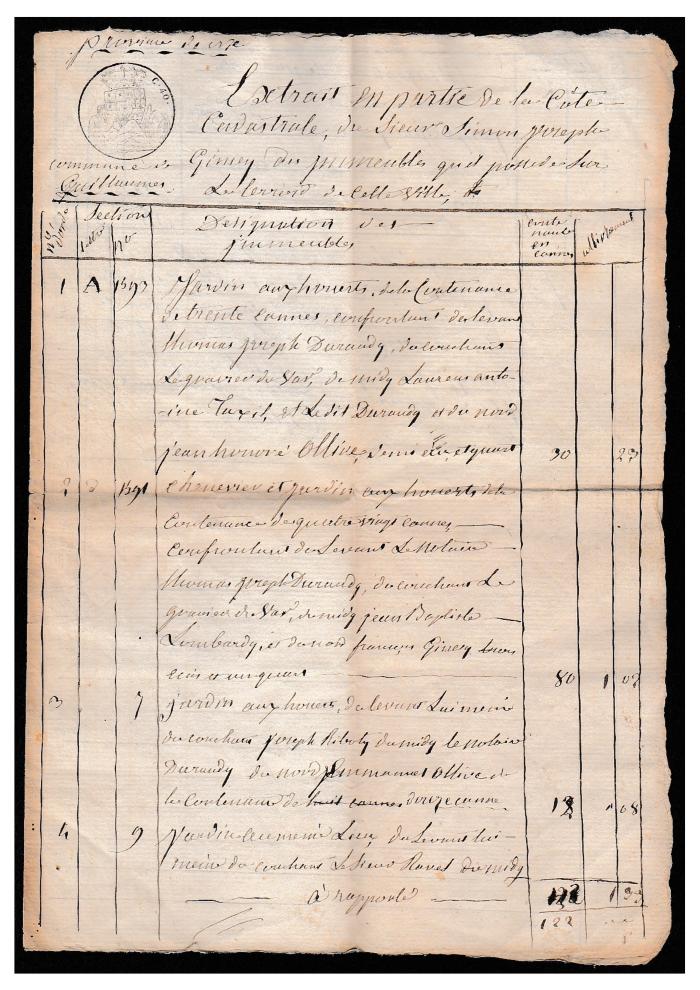 province de
C. 40.
Extrait en partie de la Côte
Cadastrale, du Sieur Simon joseph
Giney des jmmeubles qu'il possede sur
Le terroid de Cette Ville,
commune de
Guillaumes.
Section
N.o d'ordre
lettre
no
Designation des
jmmeubles
conte
nance
en
cannes
allivrement
1 A 1593 Jardin aux houerts, de la Contenance
de trente cannes, confrontant du levant
thomas joseph Durandy, du couchant
Le gravier du Var, du midy Laurens anto-
-ine Taxil, et Ledit Durandy et du nord
jean honoré Ollive, demi et quart 30 23
2 d 1591 Chenevier et jardin aux houerts de la
Contenance de quatre vingt cannes
confrontant du Levant Le Notaire
thomas joseph Durandy, du couchant Le
gravier du Var, du midy jean Baptiste
Lombardy, et du nord françois Giney trois
ecus et un quart 80 1 02
3 7 jardin aux houerts, du levant Lui meme
du couchant joseph Riboty du midy le notaire
Durandy du nord Emmanuel Ollive de
la Contenance de huit cannes douze cannes 12 08
4 9 jardin au meme Lieu, du Levant lui-
meme du couchant Le Sieur Ravel du midy
à rapporté 122 1 33
122